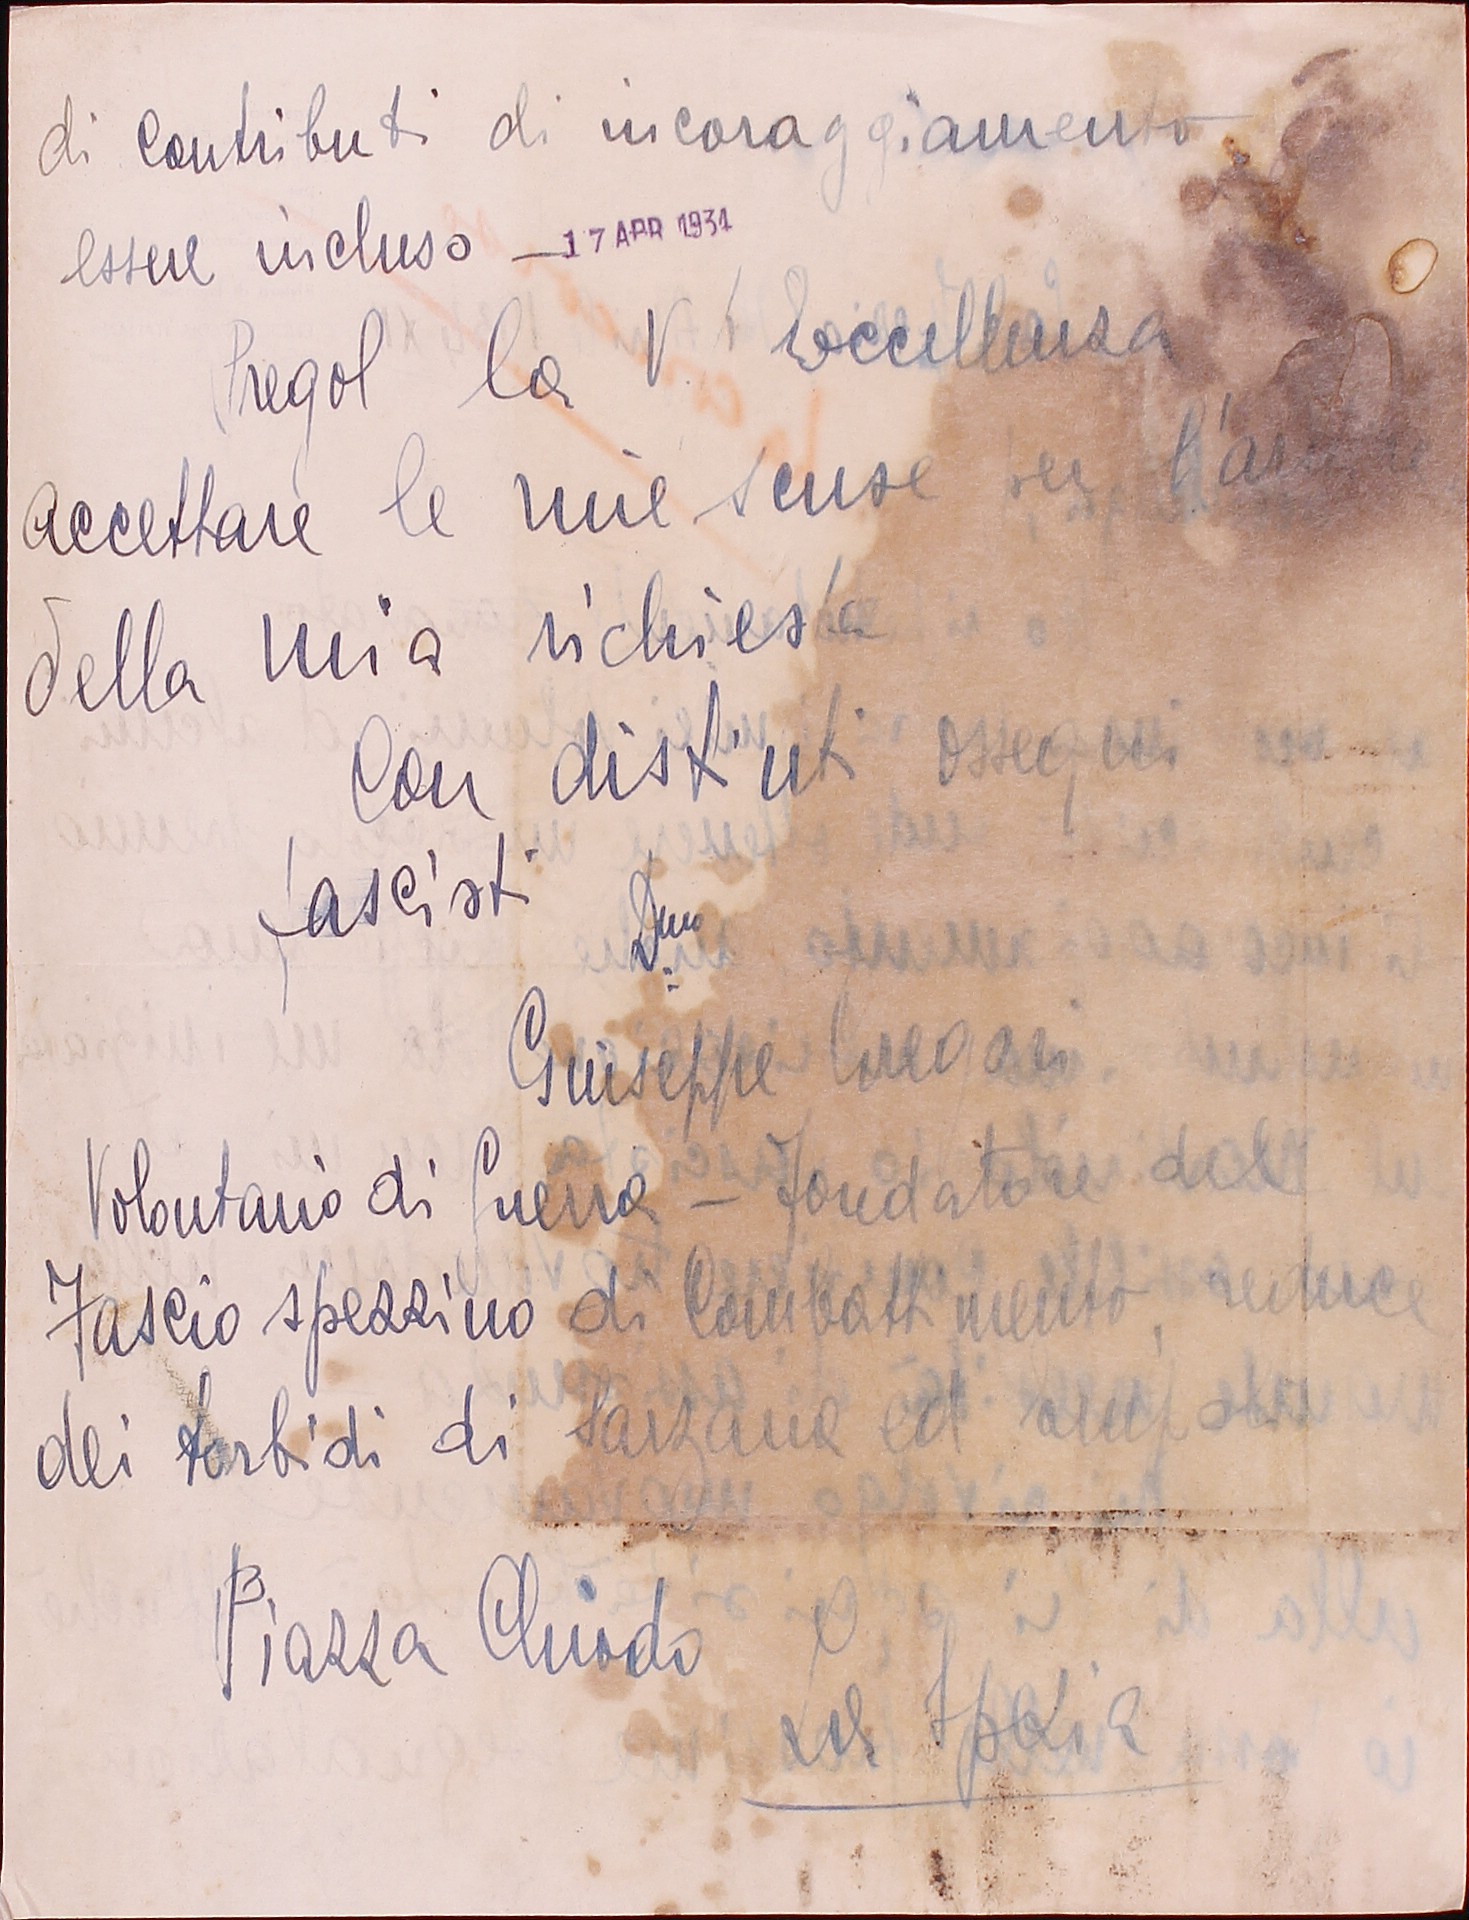 di contributi di incoraggiamento
essere incluso – 17 APR 1931
Pregol la V. Eccellenza
accettare le mie scuse per l'ardire
della mia richiesta
Con distinti ossequi
fascisti
Dmo
Giuseppe
Volontario di Guerra – Fondatore del
Fascio spezzino di Combattimento, reduce
dei torbidi di Sarzana ed
Piazza Chiodo
La Spezia